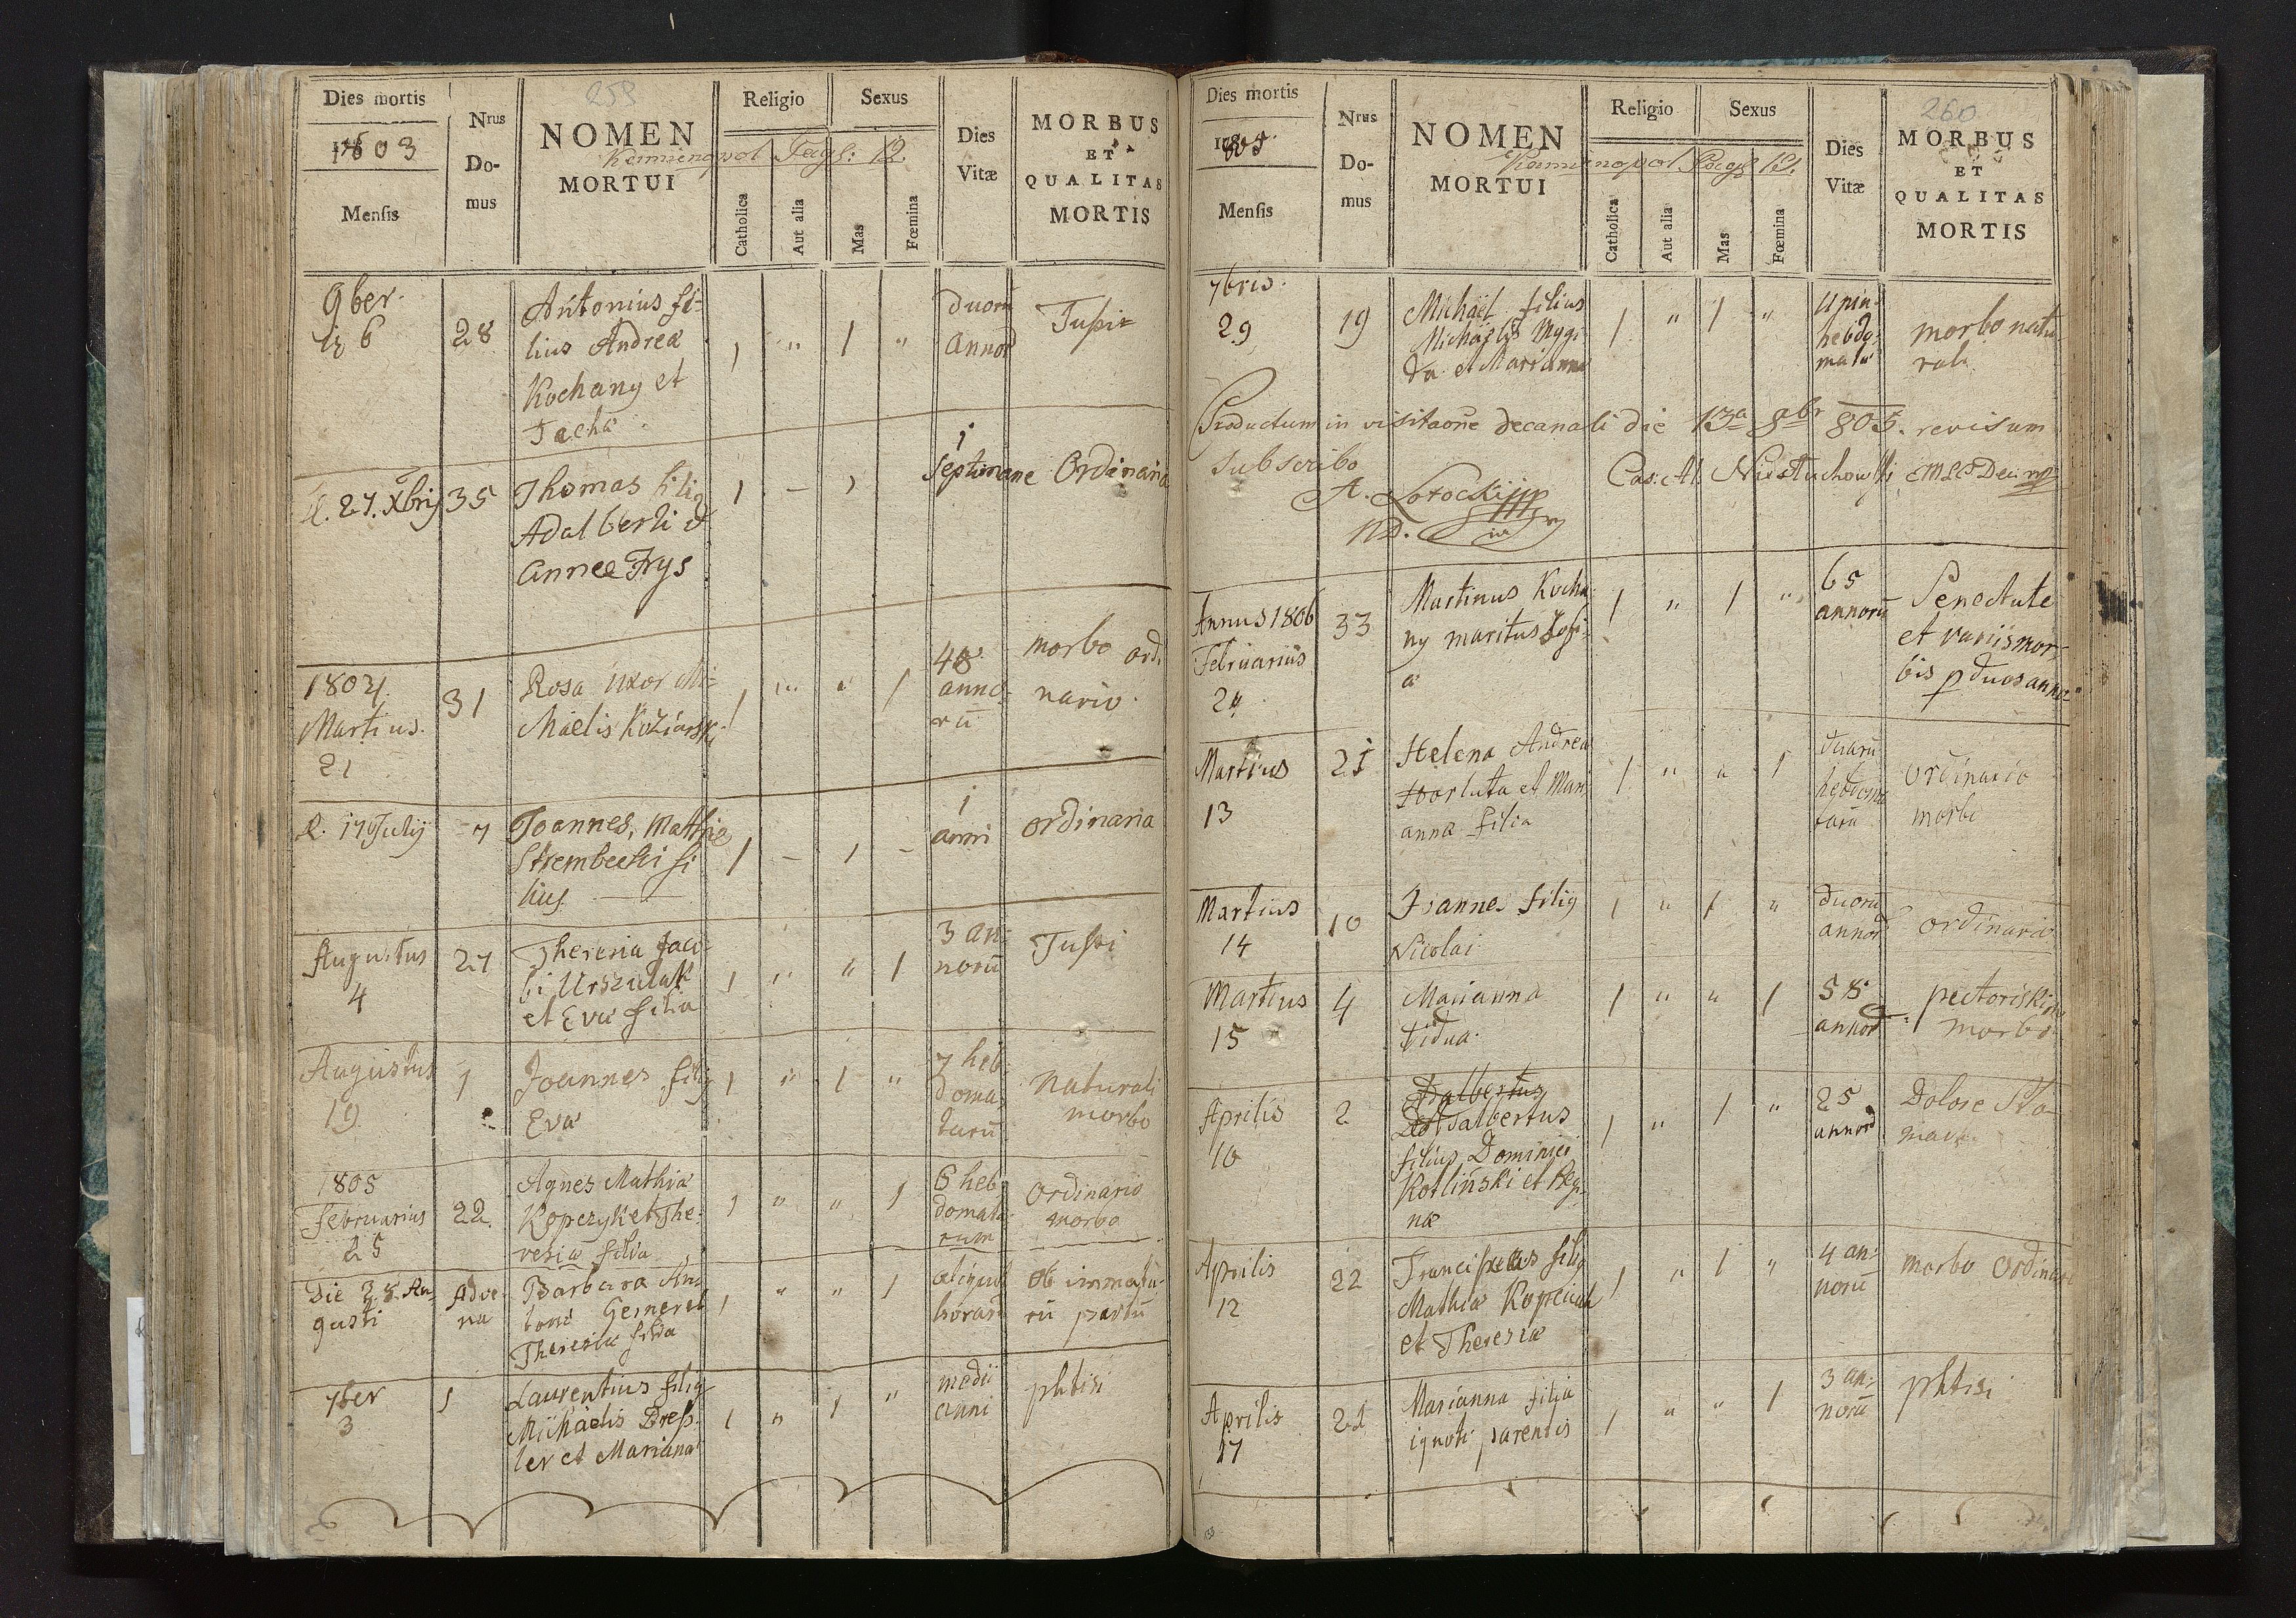 259
Dies mortis
1803
Mensis
Nrus
Do-
mus
NOMEN
MORTUI
Kamienopol Pag: 12.
Religio
Catholica
Aut alia
Sexus
Mas
Fœmina
Dies
Vitæ
MORBUS
ET
QUALITAS
MORTIS
9ber
28
Antonius fi-
lius Andreæ
Kochany et
1 " 1 "
duorū
annor
Tussi
d. 27. Xbris
35
Thomas filig
Adalberti et
Annee Frys
1 – 1
1
septimane
Ordinaria
1804.
Martius.
21
31
Rosa uxor Mi-
chaelis Koziarski
1 " " 1
48
anno-
rū
morbo ordi
nario
d. 17 Julij
7
Joannes, Matthiæ
Strembecki fi
lius
1 – 1 –
1
anni
ordinaria
Augustus
4
27
Theresia Jaco-
bi Urszulak
et Evæ filia
1 " " 1
3 an-
norū
Tussi
Augustus
19
1
Joannes filig
Evæ
1 " 1 "
7 heb-
doma-
tarū
naturali
morbo
1805
Februarius
25
22
Agnes Mathiæ
Kopczyk et The-
resiæ filia
1 " " 1
6 heb
domata
rum
Ordinario
morbo
Die 28. Au-
gusti
Adve-
na
Barbara An-
toni Gerner et
Theresiæ filia
1 " " 1
aliquot
horarū
Ob immatu-
rū partū
7ber
3
1
Laurentius filig
Michaelis Dress-
ler et Mariana
1 " 1 "
medii
anni
phtisi
260
Dies mortis
1805
Mensis
Nrus
Do-
mus
NOMEN
MORTUI
Kamienopol Pag 12.
Religio
Catholica
Aut alia
Sexus
Mas
Fœmina
Dies
Vitæ
MORBUS
ET
QUALITAS
MORTIS
7bris
29
19
Michael filius
Michaelis Mygi-
da et Marianna
1 " 1 "
hebdo-
matū
morbo natu
rali
Productum in visitaone decanali die 13a 9br 805. revisum
subscribo
Annus 1806
Februarius
24
33
Martinus Kocha
ny maritus Zofi-
æ
1 " 1 "
65
annorū
Senectute
et variis mor-
bis p duos annos
Martius
13
21
Helena Andreæ
Worluta et Mari-
anna filia
1 " " 1
duarū
hebdoma
tarū
ordinario
morbo
Martius
14
10
Joannes filig
Nicolai
1 " 1 "
duorū
annor
ordinario
Martius
15
4
Marianna
Vidua
1 " " 1
58
annor
morbo
Aprilis
10
2
Adalbertus
Adalbertus
filius Dominici
Kotlinski et Regi-
næ
1 " 1 "
25
annor
Dolore Sto-
Aprilis
12
22
Franciscus filig
Mathiæ Kopciuch
et Theresiæ
1 " 1 "
4 an-
norū
morbo Ordinari
Aprilis
17
21
Marianna filia
ignoti parentis
1 " " 1
3 an-
norū
phtisi